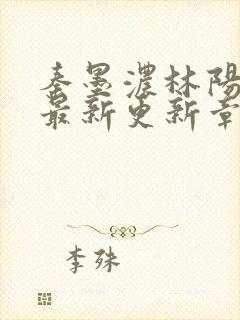 秦墨濃林陽
最新更新章
李殊